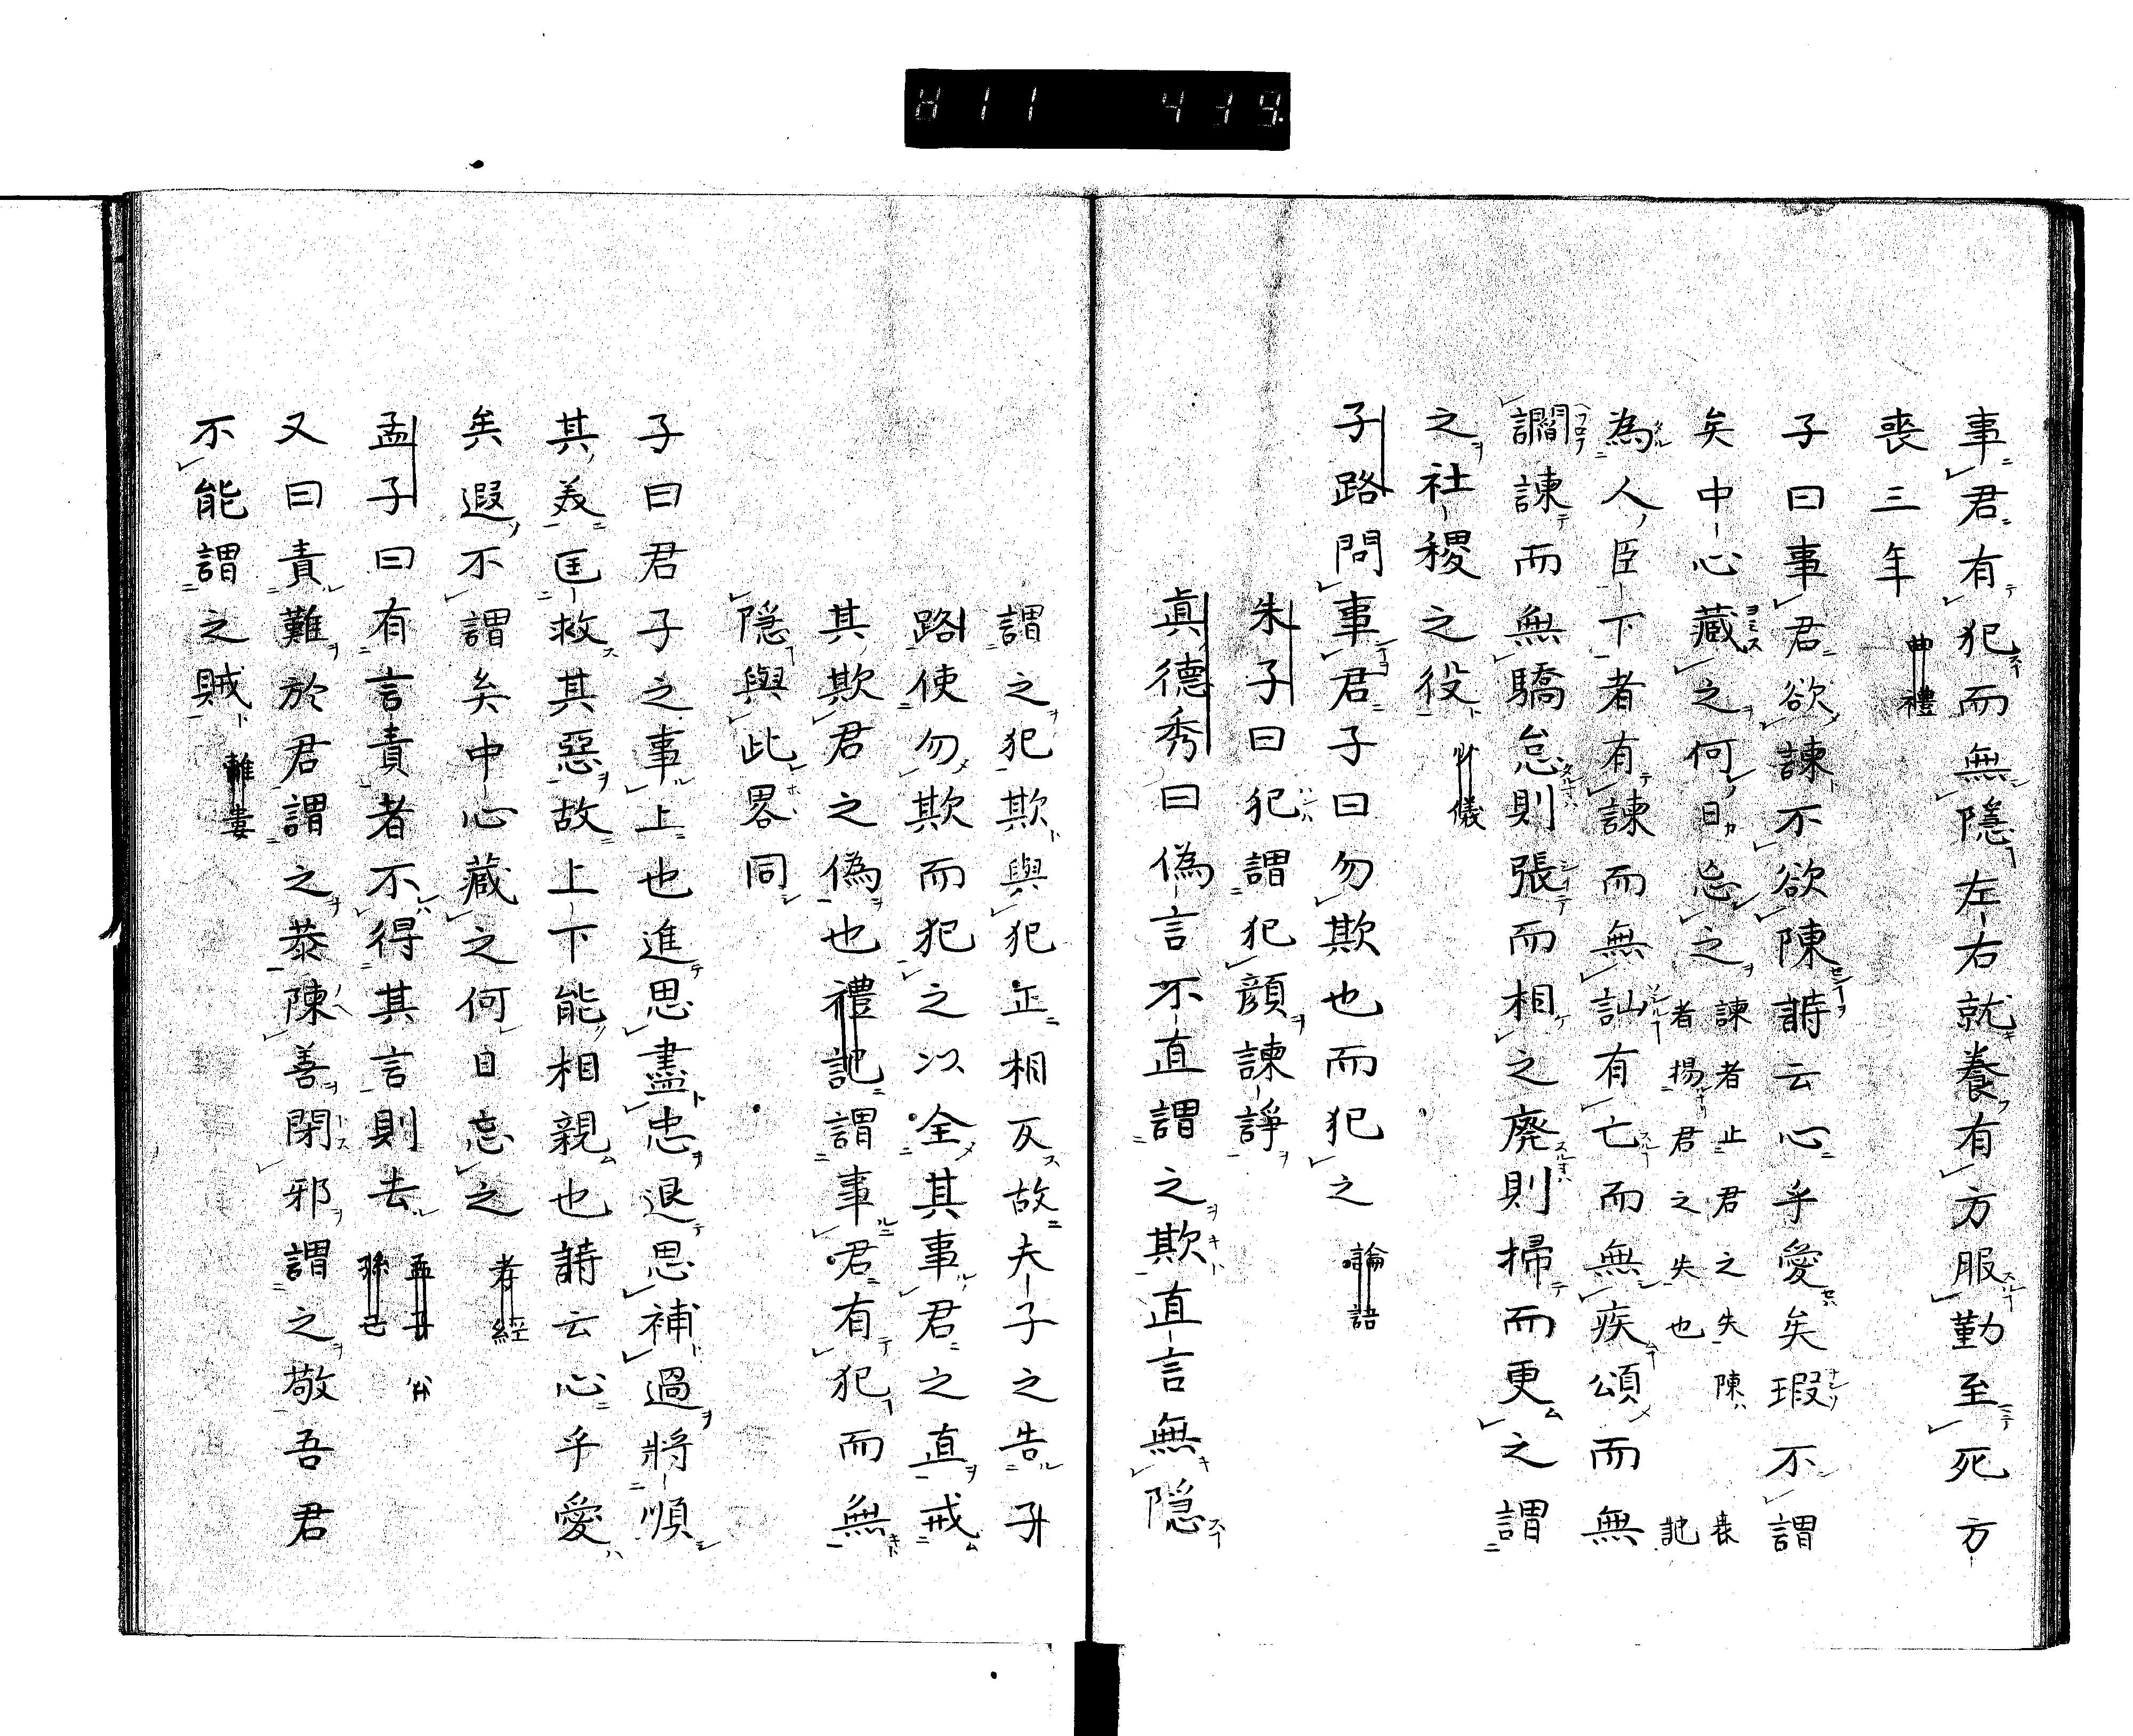 事君有犯而無隱左右就養有方服勤至死方
喪三年 曲禮
子曰事君欲諫不欲陳詩云心乎愛矣瑕不謂
矣中心藏之何日忘之 諫者止君之失陳者揚君之失也 表記
為人臣下者有諫而無訕有亡而無疾頌而無
讇諫而無驕怠則張而相之廃則掃而更之謂
之社稷之役 少儀
子路問事君子曰勿欺也而犯之 論語
朱子曰犯謂犯顔諫諍
眞德秀曰偽言不直謂之欺直言無隠
謂之犯欺與犯正相反故夫子之告子
路使勿欺而犯之以全其事君之直戒
其欺君之偽也禮記謂事君有犯而無
隠與此畧同
子曰君子之事上也進思盡忠退思補過將順
其美匡救其惡故上下能相親也詩云心乎愛
矣遐不謂矣中心藏之何日忘之 孝経
孟子曰有言責者不得其言則去 孟子公孫丑
又曰責難於君謂之恭陳善閉邪謂之敬吾君
不能謂之賊 離婁